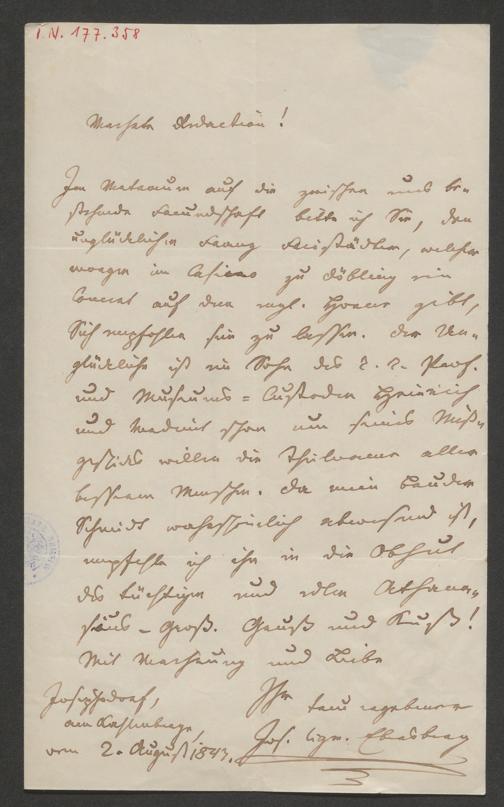 I.N. 177.358
Verehrte Redaction!
Im Vertrauen auf die zwischen uns be-
stehende Freundschaft bitte ich Sie, den
unglücklichen Franz, welcher
morgen im Casino zu Döbling ein
Concert auf dem engl. Horne gibt,
Sich empfohlen sein zu lassen. Der Un-
glückliche ist ein Sohn des k. k. Prof.
und Museums-Custoden Heinrich
und verdient schon um seines Miß-
geschickes willen die Theilnahme aller
besseren Menschen. Da mein Bruder
Schmidt wahrscheinlich abwesend ist,
empfehle ich ihn in die Obhut
des tüchtigen und edlen Athana-
sius-Groß. Gruß und Kuß!
Mit Verehrung und Liebe
Josephsdorf,
am Kahlenberge,
vom 2. August 1843.
Ihr
treu ergebener
Jos. Sigm. Ebersberg